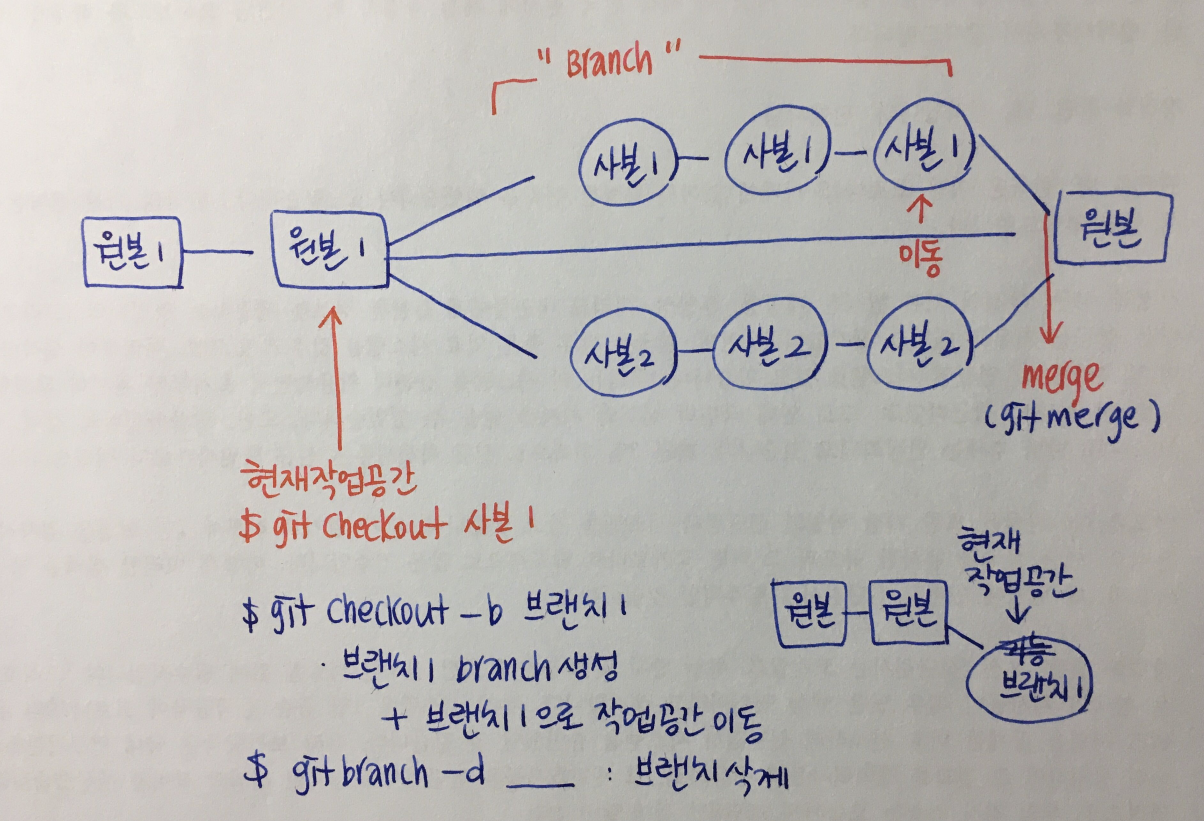 " Branch "
사본 1
사본 1
사본 1
원본 1
원본 1
원본
이동
사본 2
사본 2
사본 2
merge
(git merge)
현재작업공간
$ git checkout 사본 1
$ git checkout -b 브랜치 1
· 브랜치 1 branch 생성
+ 브랜치 1 으로 작업공간 이동
$ git branch -d ____ : 브랜치 삭제
현재
작업공간
원본
원본
브랜치 1